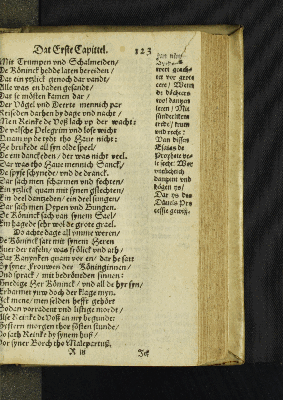 Dat Erste Capittel. 123
Mit Trumpen vnd Schalmeiden/
De Könninck hedde laten bereiden/
Dat ein ytzlick genoch dar vandt/
Alle was en baden gesandt/
Dat se mösten kamen dar/
Der Vögel vnd Deerte mennich par
Reiseden darhen by dage vnd nacht/
Men Reinke de Voß lach vp der wacht:
De valsche Pelegrim vnd lose wicht
Quam vp de tydt tho Haue nicht:
He brukede all syn olde speel/
De em danckeden/ der was nicht veel.
Dar was tho Haue mennich Sanck/
De spyse schynede/ vnd de dranck.
Dar sach men scharmen vnd fechten/
Ein ytzlick quam mit synen geslechten/
Ein deel dantzeden/ ein deel sungen/
Dar sach men Pypen vnd Bungen.
De Könninck sach van synem Sael/
Em hagede sehr wol de grote grael.
Do achte dage all ümme weren/
De Könninck satt mit synem Heren
Auer der tafeln/ was frölick vnd arth/
Dat Kanynken quam vor en/ dar he satt
By syner Frouwen der Könninginnen/
Vnd sprack/ mit bedröueden sinnen:
Gnedige Her Könninck/ vnd all de hyr syn/
Erbarmet yuw doch der klage myn.
Ick mene/ men selden hefft gehört
Soden vorradent vnd listige mordt/
Alse Reinke de Voß an my begundt:
Gistern morgen thor sösten stunde/
Do sath Reinke by synem huß/
Vor syner Borch tho Malepartuß,
R iij Ick
wert geach-
tet vor grote
ere/ Wenn
de döchtere
wol dantzen
leren/ Mit
vnd recht:
Van dissen
Esaias de
Prophete ys-
te secht: Wee
dantzen vnd
högen ys/
Dat ys des
Düuels Pro-
cessie gewiß.